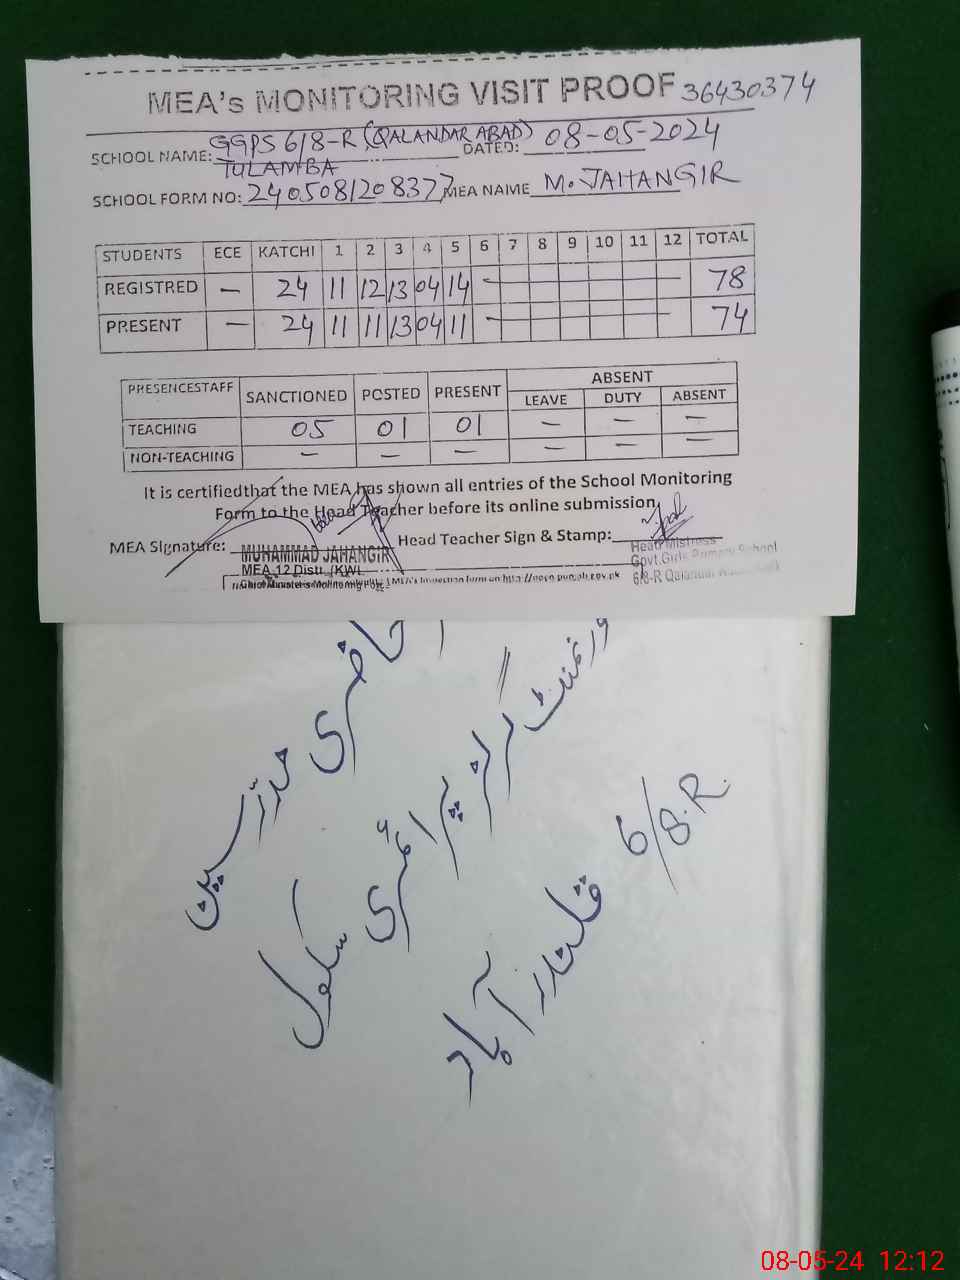 MEA's MONITORING VISIT PROOF 36430374
SCHOOL NAME: GGPS 6/8-R (QALANDAR ABAD) DATED: 08-05-2024
TULAMBA
SCHOOL FORM NO: 240508120837 MEA NAME M. JAHANGIR
STUDENTS ECE KATCHI 1 2 3 4 5 6 7 8 9 10 11 12 TOTAL
REGISTRED — 24 11 12 13 04 14 — 78
PRESENT — 24 11 11 13 04 11 — 74
PRESENCESTAFF SANCTIONED POSTED PRESENT ABSENT
LEAVE DUTY ABSENT
TEACHING 05 01 01 — — —
NON-TEACHING — — — — — —
It is certifiedthat the MEA has shown all entries of the School Monitoring
Form to the Head Teacher before its online submission.
MEA Signature: Head Teacher Sign & Stamp:
MUHAMMAD JAHANGIR
MEA 12 Distt. (KWL
Chief Minister's Monitoring Force
MEA's Inspection form on http://
Head Mistress
Govt. Girls Primary School
6/8-R
حاضری مدرسین
گورنمنٹ گرلز پرائمری سکول
6/8.R قلندر آباد
08-05-24 12:12